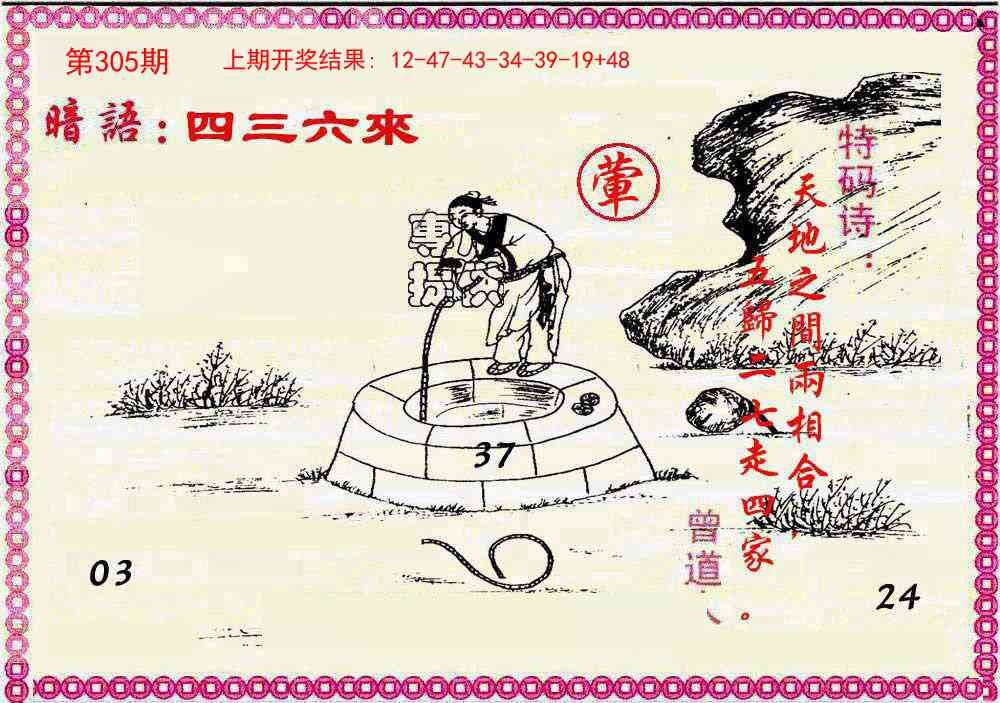 第305期
上期开奖结果: 12-47-43-34-39-19+48
暗語:四三六來
葷
特码诗:
天地之間兩相合,
五歸二七走四家。
曾道人
37
03
24